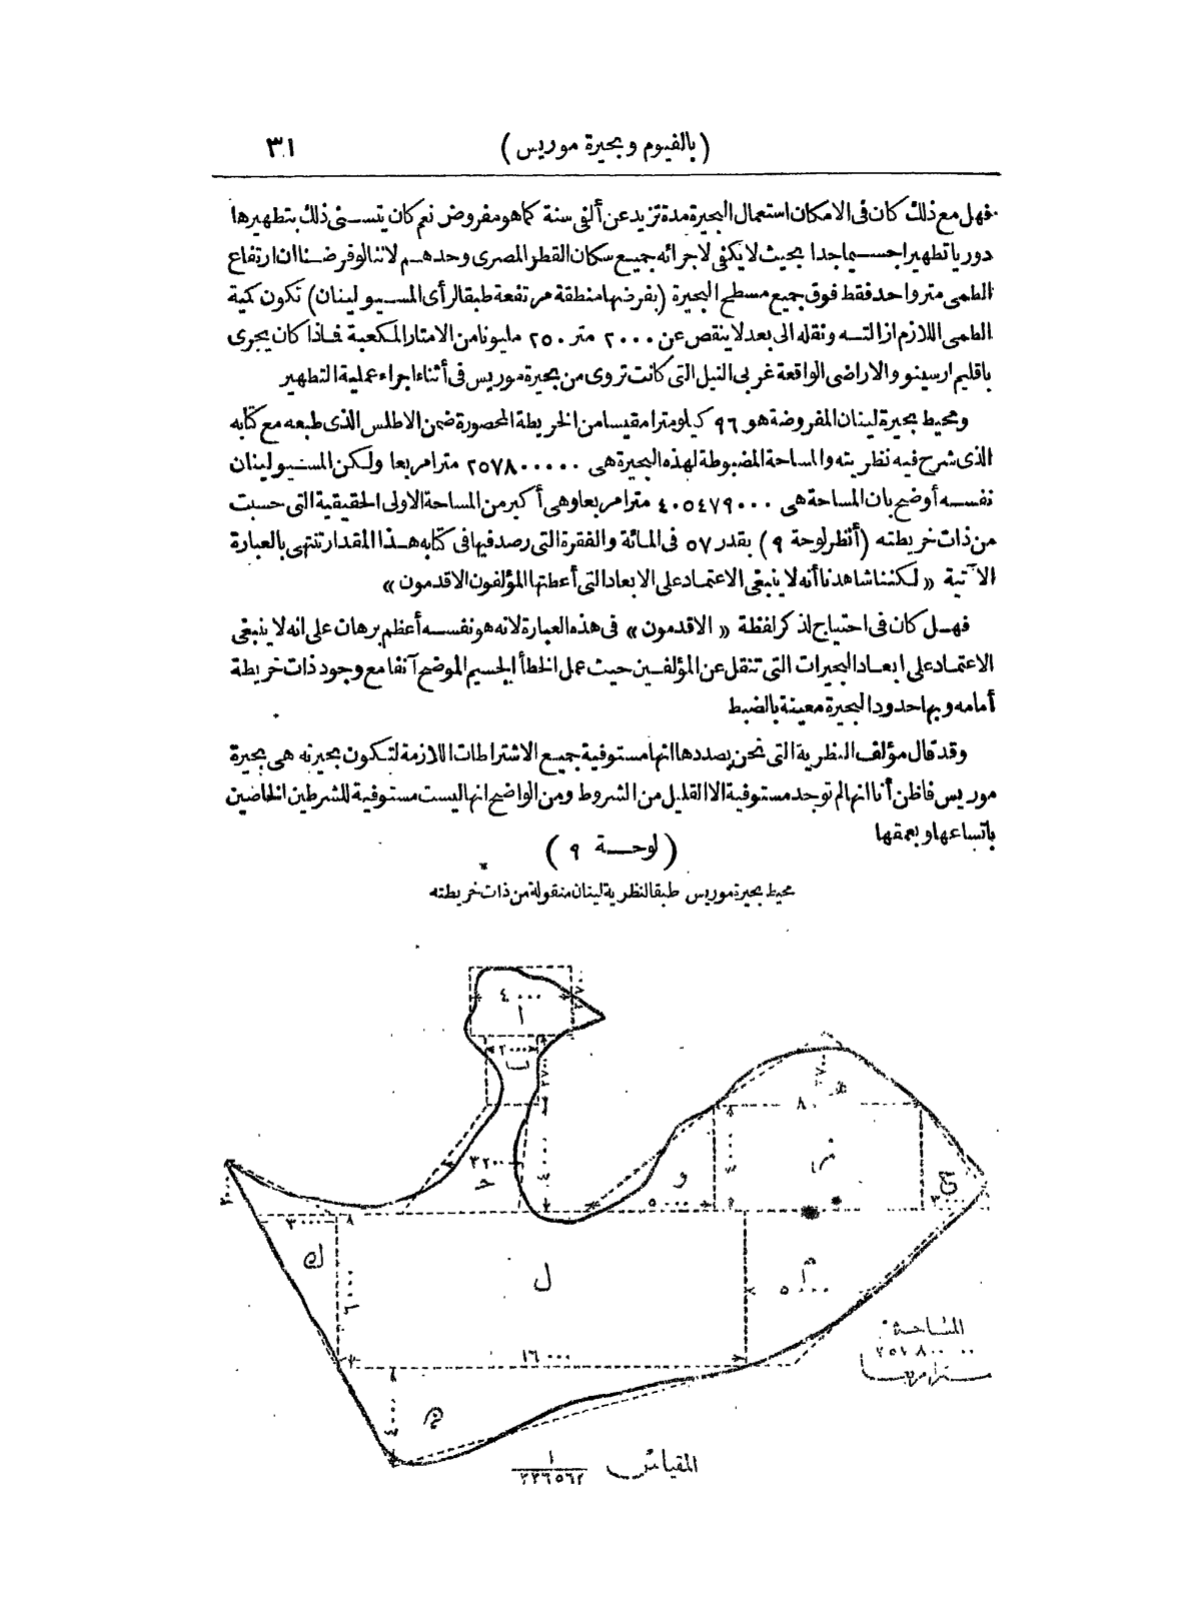 (بالفيوم وبحيرة موريس)
٣١
فهل مع ذلك كان فى الامكان استعمال البحيرة مدة تزيد عن ألفى سنة كما هو مفروض نعم كان يتسنى ذلك بتطهيرها
دوريا تطهيرا جسيما جدا بحيث لا يكفى لاجرائه جميع سكان القطر المصرى وحدهم لاننا لو فرضنا ان ارتفاع
الطمى متر واحد فقط فوق جميع مسطح البحيرة (بفرضها منطقة مرتفعة طبقا لرأى المسيو لينان) تكون كمية
الطمى اللازم ازالته ونقله الى بعد لا ينقص عن ٢٠٠٠ متر ٢٥٠ مليونا من الامتار المكعبة فاذا كان يجرى
باقليم ارسينو والاراضى الواقعة غربى النيل التى كانت تروى من بحيرة موريس فى أثناء اجراء عملية التطهير
ومحيط بحيرة لينان المفروضة هو ٩٦ كيلومترا مقيسا من الخريطة المحصورة ضمن الاطلس الذى طبعه مع كتابه
الذى شرح فيه نظريته والمساحة المضبوطة لهذه البحيرة هى ٢٥٧٨٠٠٠٠٠ مترا مربعا ولكن المسيو لينان
نفسه أوضح بان المساحة هى ٤٠٥٤٧٩٠٠٠ مترا مربعا وهى أكبر من المساحة الاولى الحقيقية التى حسبت
من ذات خريطته (أنظر لوحة ٩) بقدر ٥٧ فى المائة والفقرة التى رصد فيها فى كتابه هذا المقدار تنتهى بالعبارة
الآتية « لكننا شاهدنا أنه لا ينبغى الاعتماد على الابعاد التى أعطتها المؤلفون الاقدمون »
فهل كان فى احتياج لذكر لفظة « الاقدمون » فى هذه العبارة لانه هو نفسه أعظم برهان على انه لا ينبغى
الاعتماد على ابعاد البحيرات التى تنقل عن المؤلفين حيث عمل الخطأ الجسيم الموضح آنفا مع وجود ذات خريطة
أمامه وبها حدود البحيرة معينة بالضبط
وقد قال مؤلف النظرية التى نحن بصددها انها مستوفية جميع الاشتراطات اللازمة لتكون بحيرته هى بحيرة
موريس فاظن أنا انها لم توجد مستوفية الا القليل من الشروط ومن الواضح انها ليست مستوفية للشرطين الخاصين
باتساعها وبعمقها
(لوحة ٩)
محيط بحيرة موريس طبقا لنظرية لينان منقولة من ذات خريطته
٤٠٠٠
ا
٢٠٠٠
ب
٣٢٠٠
ح
٨
و
٥٠٠٠
٣٠٠٠
٣٠٠٠
ك
ل
م
٥٠٠٠
١٦٠٠٠
المساحة
٢٥٧٨٠٠٠٠٠
مترا مربعا
المقياس ١/٢٣٦٥٦٢